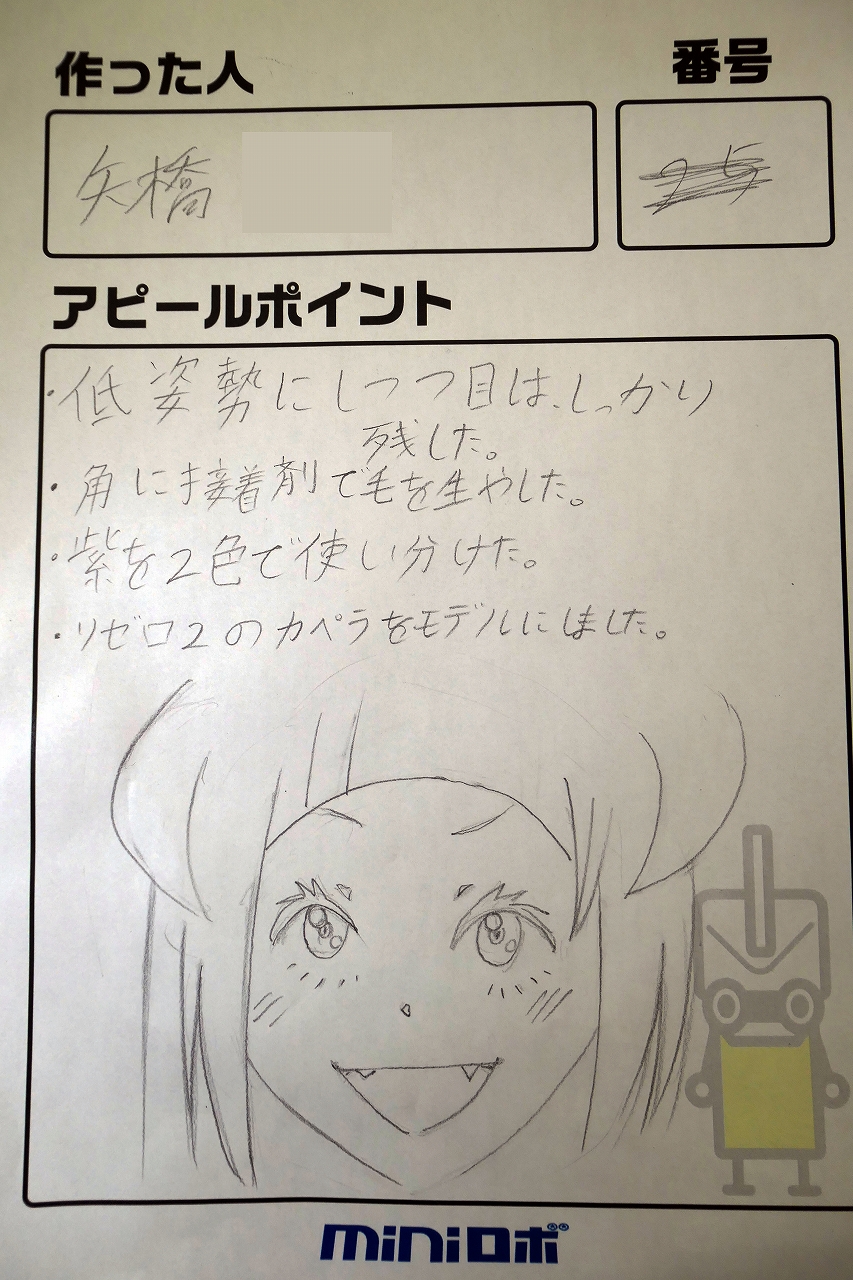 作った人
番号
矢橋
25
アピールポイント
・低姿勢にしつつ目は、しっかり
残した。
・角に接着剤で毛を生やした。
・紫を2色で使い分けた。
・リゼロ2のカペラをモデルにしました。
miniロボ